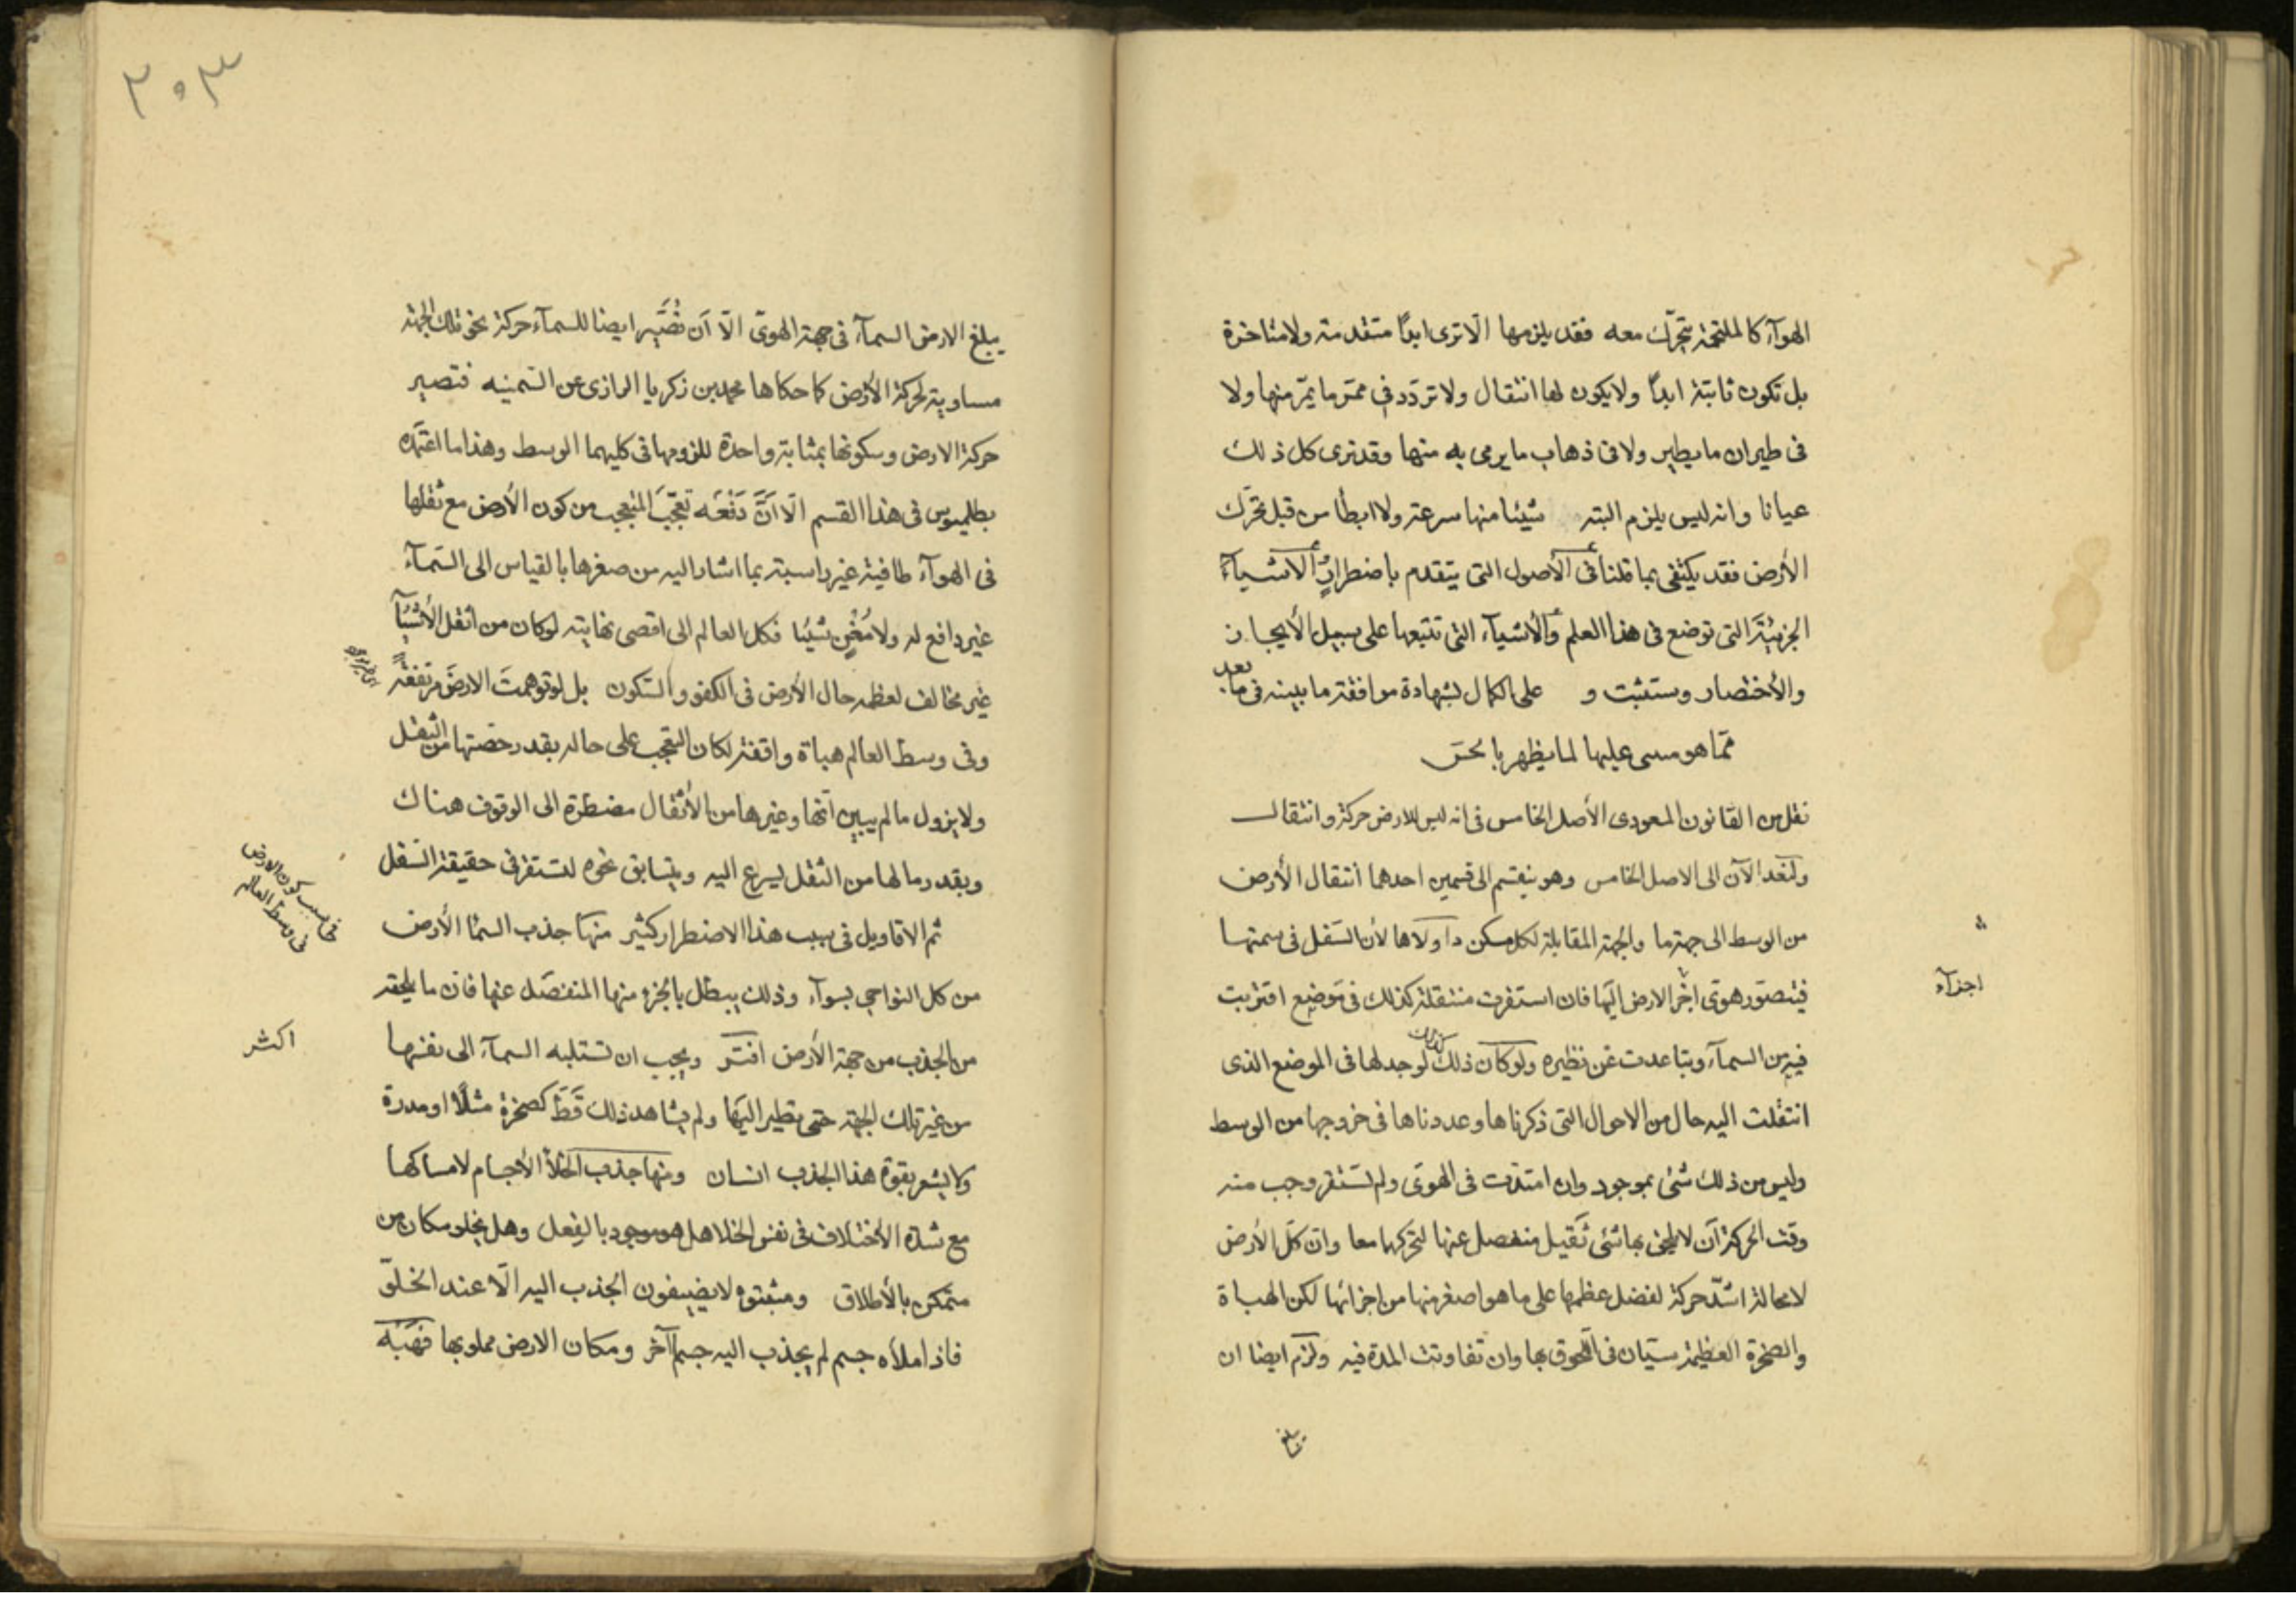 الهوآء كالملتحمة يتحرّك معه فقد يلزمها الّا ترى ابدًا متقدمة ولا متاخرة
بل تكون ثابتة ابدًا ولا يكون لها انتقال ولا تردّد فى ممرّ ما يمرّ منها ولا
فى طيران ما يطير ولا فى ذهاب ما يرمى به منها وقد نرى كل ذلك
عيانا وانه ليس يلزم البتة شيئا منها سرعة ولا ابطأ من قبل تحرّك
الأرض فقد يكتفى بما قلنا فى الأصول التى يتقدم باضطرارٍ الأشيآء
الجزئيّة التى توضع فى هذا العلم والأشيآء التى تتبعها على سبيل الأيجاز
والأختصار وستثبت و على الكمال بشهادة موافقة ما بينه فى ما بعد
ممّا هو مسى عليها لما يظهر بالحسّ
نقل من القانون المسعودى الأصل الخامس فى انه ليس للارض حركة وانتقال
ولنعد الآن الى الاصل الخامس وهو ينقسم الى قسمين احدهما انتقال الأرض
من الوسط الى جهة ما والجهة المقابلة لكل مسكن داولاها لأن السّفل فى سمتها
فيتصوّر هوىّ اخر الارض اليها فان استقرت منتقلة كذلك فى موضع اقتربت
اجزآء
فيه من السمآء وتباعدت عن نظيره ولو كان ذلك كذلك لوجد لها فى الموضع الذى
انتقلت اليه حال من الاحوال التى ذكرناها وعددناها فى خروجها من الوسط
وليس من ذلك شئ بموجود وان امتدّت فى الهوىّ ولم تستقر وجب منه
وقت الحركة أن لا يلحق بها شئ ثقيل منفصل عنها لتحركهما معا وان كلّ الأرض
لا محالة اشدّ حركة لفضل عظمها على ما هو اصغر منها من اجزائها لكن الهباة
والصخرة العظيمة سيّان فى اللّحوق بها وان تفاوتت المدة فيه ولزم ايضا ان
٣٥٣
يبلغ الارض السمآء فى جهة الهوىّ الّا أن نُصَيِّر ايضا للسمآء حركة نحو تلك الجهة
مساوية لحركة الأرض كما حكاها محمد بن زكريا الرازى عن السّمنيه فتصير
حركة الارض وسكونها بمثابة واحدة للزومها فى كليهما الوسط وهذا ما اعتمده
بطلميوس فى هذا القسم الّا أنَّ دَفْعَه تعجّبَ المتعجب من كون الأرض مع ثقلها
فى الهوآء طافية غير راسبة بما اشار اليه من صغرها بالقياس الى السّمآء
غير دافع له ولا مُغْنٍ شيئا فكل العالم الى اقصى نهايته لو كان من اثقل الأشيآء
غير مخالف لعظمه حال الأرض فى الكفو والسّكون بل لو توهمتَ الارضَ مرتفعةً
وفى وسط العالم هباة واقفة لكان التعجب على حاله بقدر حصّتها من الثقل
ولا يزول ما لم يبين انّها وغيرها من الأثقال مضطرّة الى الوقوف هناك
وبقدر ما لها من الثقل يسرع اليه ويتسابق نحوه لتستقر فى حقيقة السّفل
فى سبب كون الارض
فى وسط العالم
ثم الاقاويل فى سبب هذا الاضطرار كثير منها جذب السّمآ الأرض
من كل النواحي بسوآء وذلك يبطل بالجزء منها المنفصّل عنها فانّ ما يلحقه
من الجذب من جهة الأرض افتر ويجب ان تستلبه السمآء الى نفسها
اكثر
من غير تلك الجهة حتى يطير اليها ولم يشاهد ذلك قَطّ كصخرة مثلًا او مدرة
ولا يشعر بقوة هذا الجذب انسان ومنها جذب الخلأ الأجسام لامساكها
مع شدّة الأختلاف فى نفس الخلا هل هو موجود بالفعل وهل يخلو مكان من
متمكن بالأطلاق ومثبتوه لا يضيفون الجذب اليه الّا عند الخلوّ
فاذا ملأه جسم لم يجذب اليه جسم آخر ومكان الارض مملو بها فَهَبْه